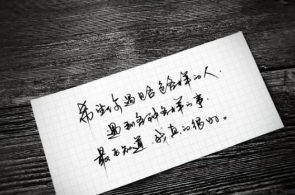 希望你遇到各色各样的人
遇到各种各样的事
最后知道 我真的很好。